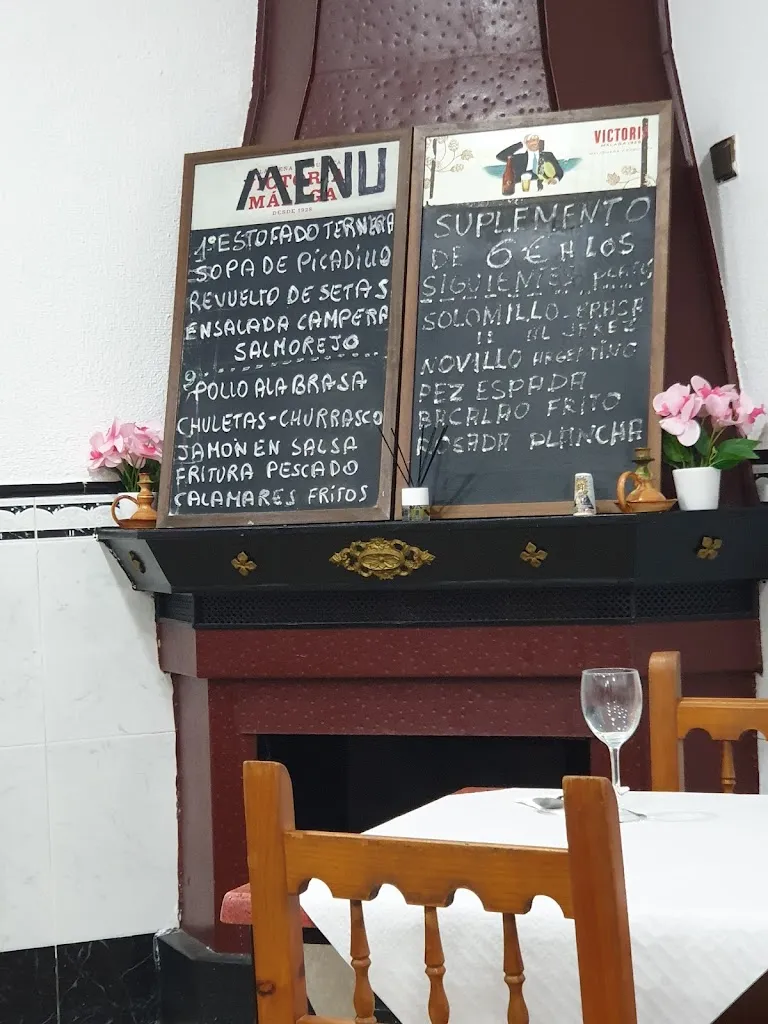 MENU
MÁLAGA
DESDE 1928
1º ESTOFADO TERNERA
SOPA DE PICADILLO
REVUELTO DE SETAS
ENSALADA CAMPERA
SALMOREJO
2º POLLO A LA BRASA
CHULETAS-CHURRASCO
JAMON EN SALSA
FRITURA PESCADO
CALAMARES FRITOS
VICTORIA
SUPLEMENTO
DE 6€ A LOS
SIGUIENTES PLATOS
SOLOMILLO-BRASA
" AL JEREZ
NOVILLO ARGENTINO
PEZ ESPADA
BACALAO FRITO
ROSADA PLANCHA